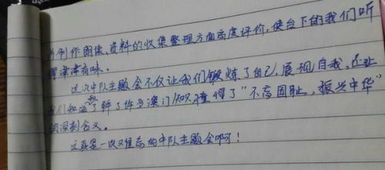 制作图像、资料的收集整理方面高度评价，使台下的我们听
津津有味。
这次中队主题会不仅让我们锻炼了自己，展现自我，还让
我们知道了许多澳门知识，懂得了“不忘国耻，振兴中华”
的深刻含义。
这真是一次难忘的中队主题会啊！